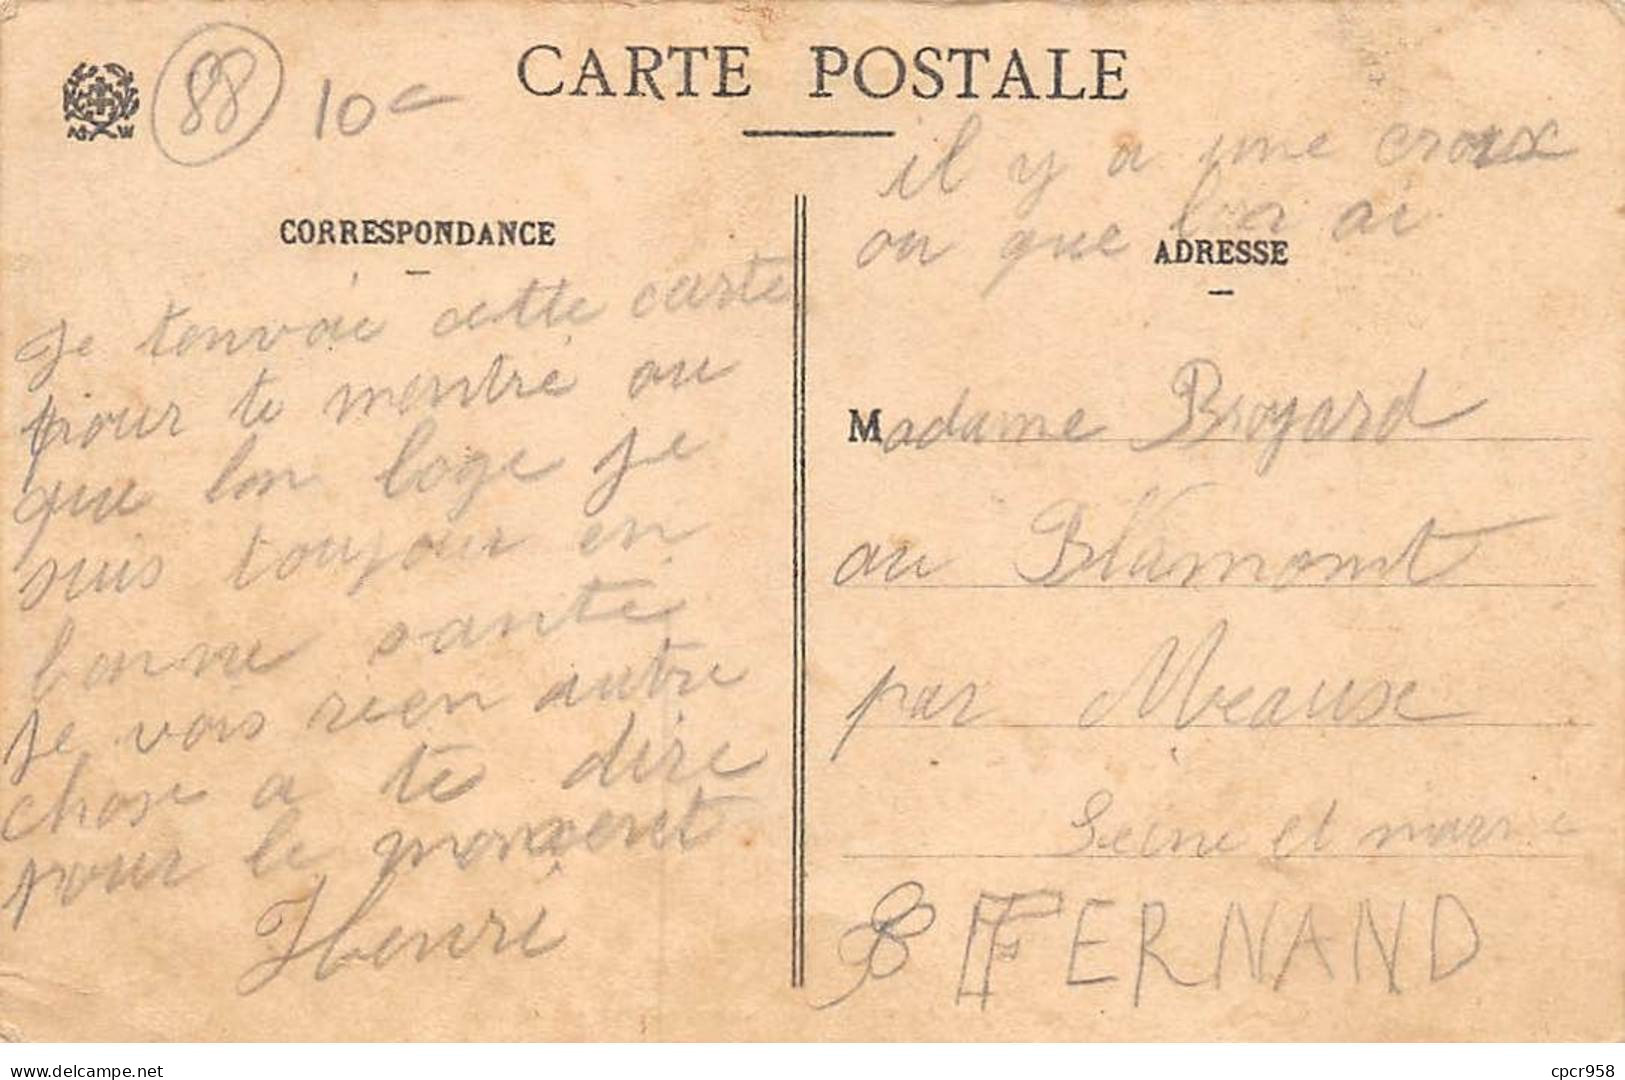 88
10c
CARTE POSTALE
il y a une croix
ou que ai
CORRESPONDANCE
ADRESSE
Je tenvoie cette carte
pour te montré ou
que lon loge je
suis toujour en
bonne santé
je vois rien autre
chose a te dire
pour le moment
Henri
Madame Broyard
au Blamont
par Meaux
Seine et marne
FERNAND
www.delcampe.net
cpcr958